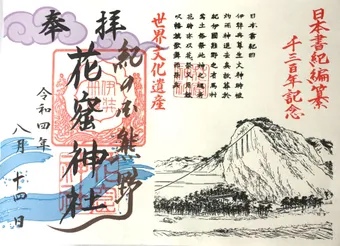 日本書紀編纂
千三百年記念
日本書紀曰
伊弉冉尊生火神時被
灼而神退去矣故葬於
紀伊國熊野之有馬村
焉土俗祭此神之魂者
花時亦以花祭
吹幡旗歌舞而祭矣
世界文化遺産
奉拝
紀の国熊野
花窟神社
令和四年
八月十四日